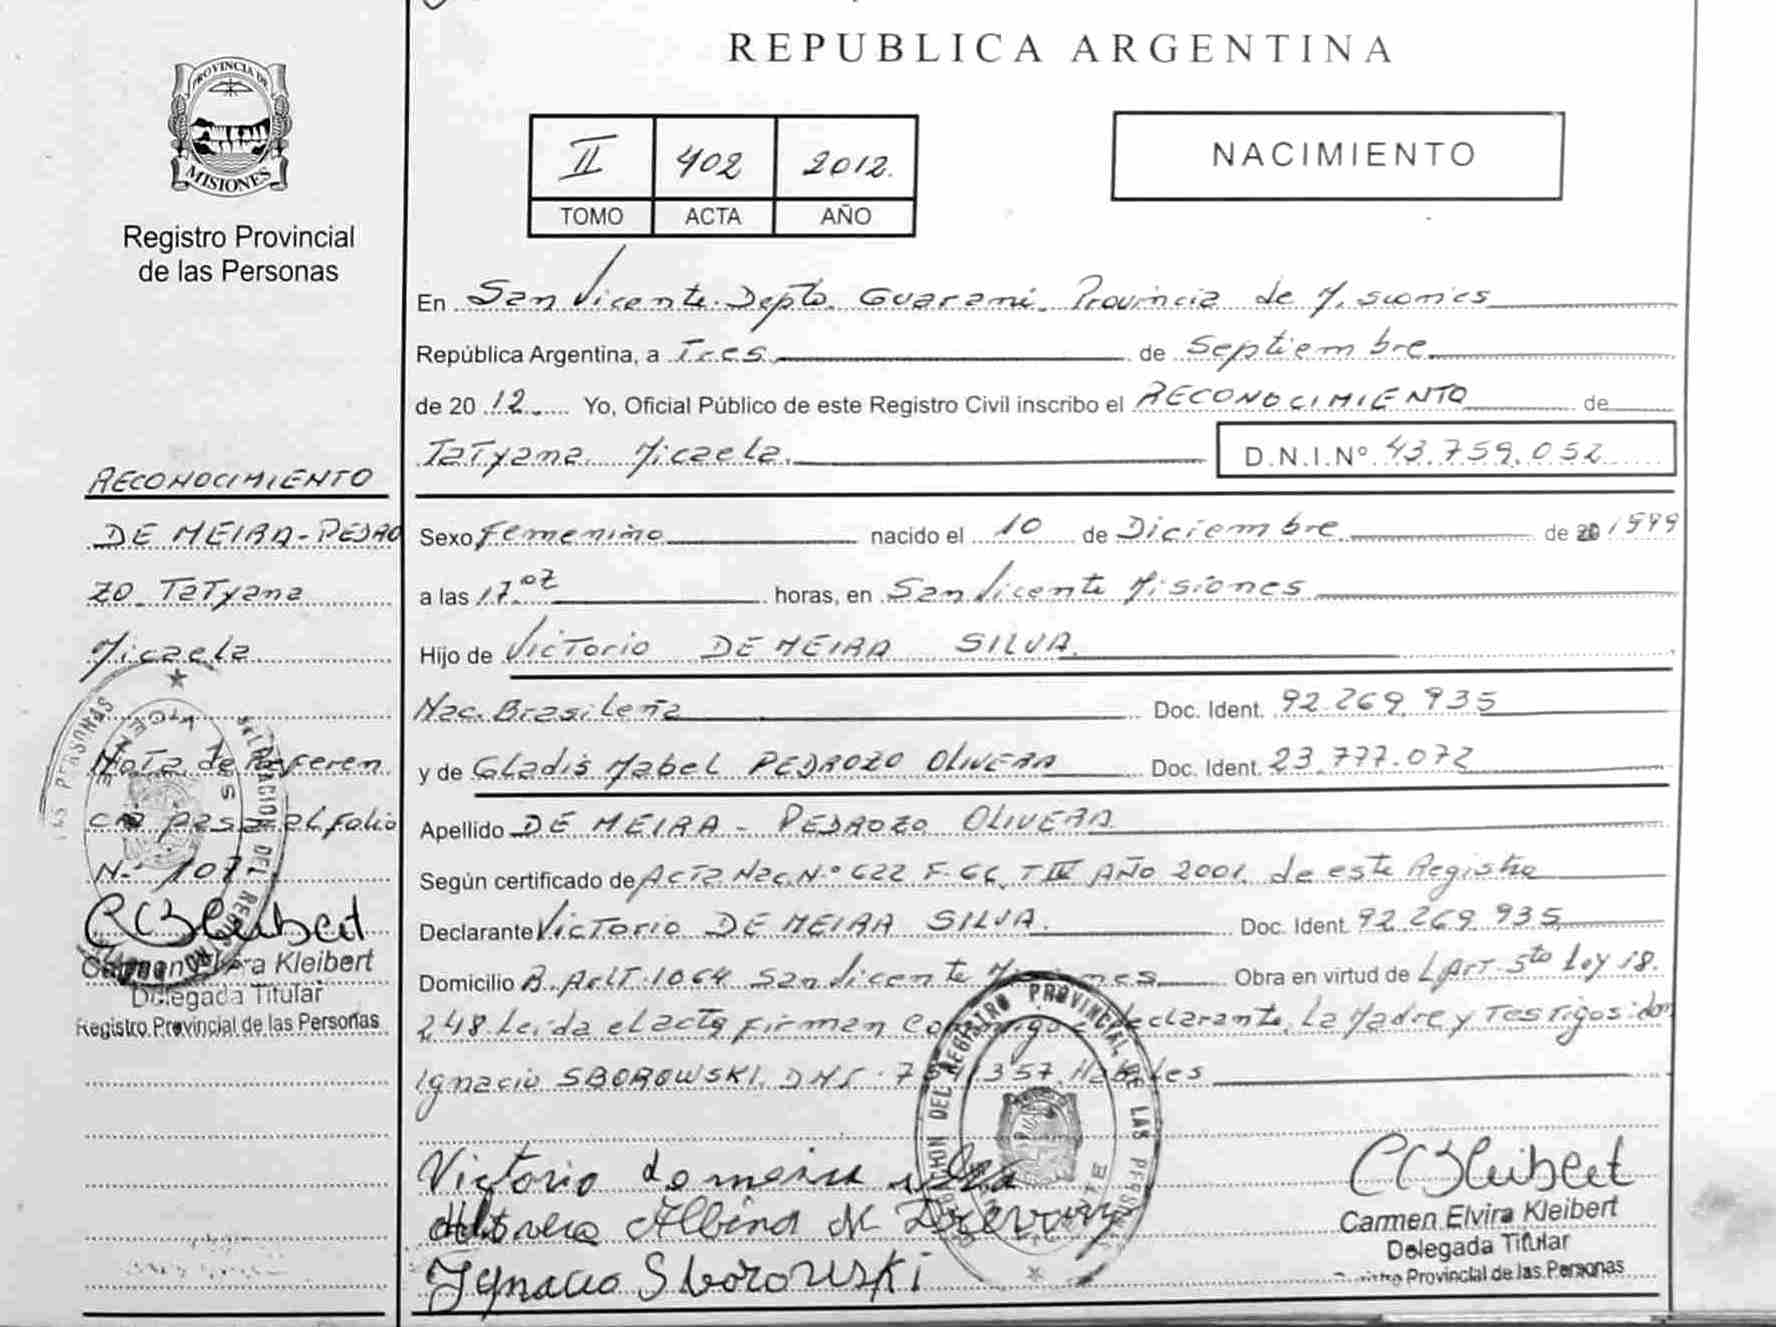 REPUBLICA ARGENTINA
PROVINCIA DE
MISIONES
Registro Provincial
de las Personas
II 402 2012.
TOMO ACTA AÑO
NACIMIENTO
En San Vicente. Depto. Guarani. Provincia de Misiones
República Argentina, a Tres de Septiembre
de 2012. Yo, Oficial Público de este Registro Civil inscribo el RECONOCIMIENTO de
Tatyana Micaela. D.N.I.Nº 43.759.052
RECONOCIMIENTO
DE MEIRA-PEDRO
ZO Tatyana
Micaela
Nota de Referen
cia pasa al folio
N- 107
Carmen Elvira Kleibert
Delegada Titular
Registro Provincial de las Personas
Sexo Femenino nacido el 10 de Diciembre de 20 1999
a las 17.07 horas, en San Vicente Misiones
Hijo de Victorio DE MEIRA SILVA.
Nac. Brasileña Doc. Ident. 92.269.935
y de Gladis Mabel PEDROZO OLIVERA Doc. Ident. 23.777.072
Apellido DE MEIRA - PEDROZO OLIVERA
Según certificado de Acta Nac. N° 622 F. 66 T III AÑO 2001. de este Registro
Declarante Victorio DE MEIRA SILVA. Doc. Ident. 92.269.935
Domicilio B. 1064 San Vicente Obra en virtud de L Art. 5to Ley 18.
248. Leida el acta firman declarante, La Madre y Testigos: don
Ignacio SBOROWSKI. 357. Habiles
Victorio de meira silva
Albina
Ignacio Sborowski
CCKleibert
Carmen Elvira Kleibert
Delegada Titular
Registro Provincial de las Personas